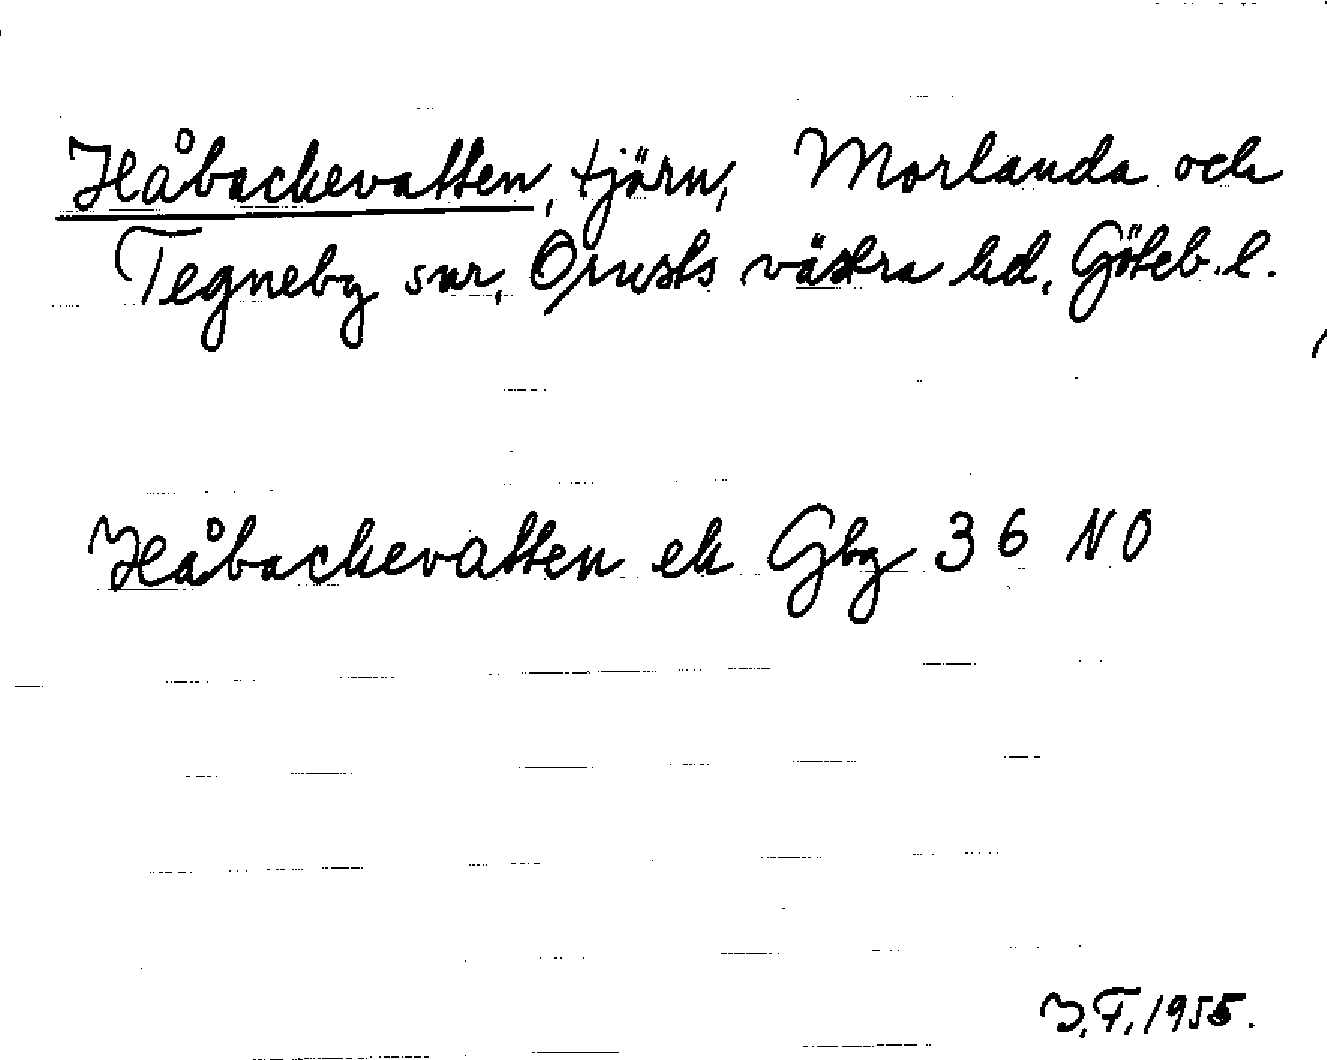 Håbackevatten, tjörn, Morlanda och
Tegneby snr, Orusts västra hd, Göteb.l.
Håbackevatten ek Gbg 36 NO
J.F. 1955.